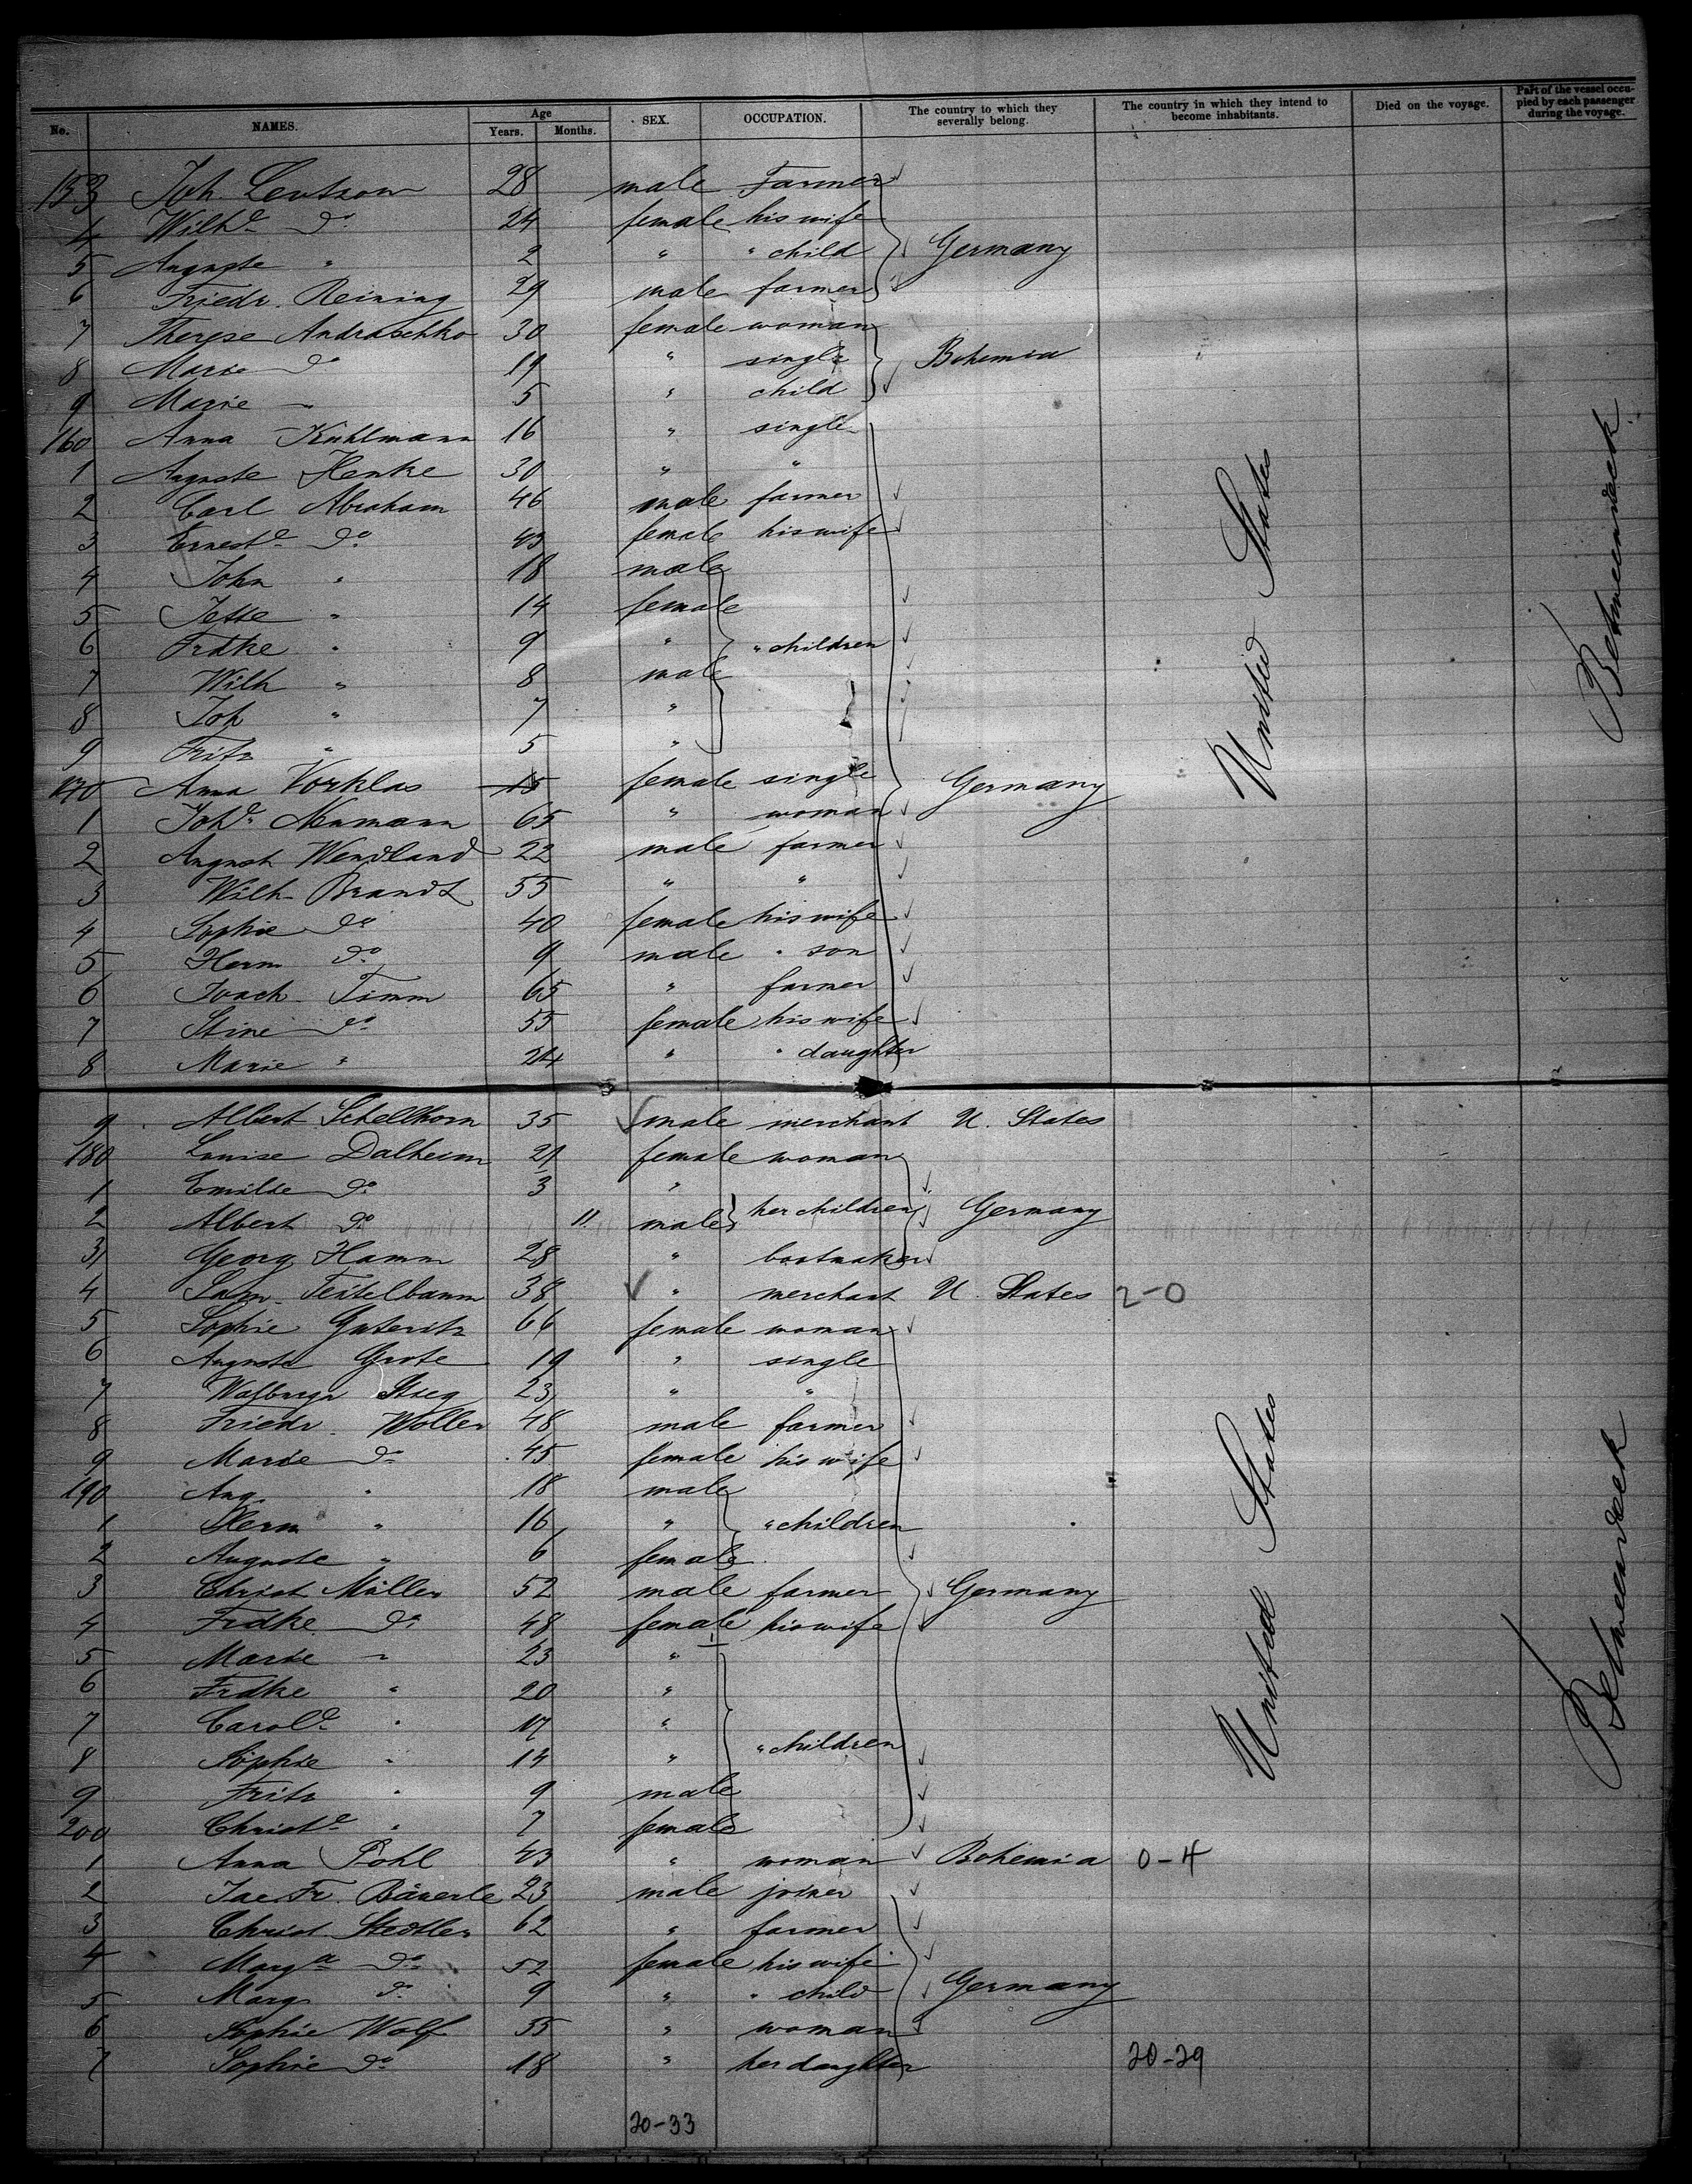 No. NAMES. Age Years. Months. SEX. OCCUPATION. The country to which they severally belong. The country in which they intend to become inhabitants. Died on the voyage. Part of the vessel occupied by each passenger during the voyage.
153 Joh. Leutzow 28 male Farmer
4 Wilhe do 24 female his wife
5 Auguste " 2 " " child Germany
6 Friedr. Reining 29 male farmer
7 Therese Andraschko 30 female woman
8 Marie do 19 " single Bohemia
9 Marie " 5 " child
160 Anna Kuhlmann 16 " single
1 Auguste Henke 30 " "
2 Carl Abraham 46 male farmer
3 Erneste do 43 female his wife
4 John " 18 male
5 Jette " 14 female
6 Frdke " 9 " " children
7 Wilh " 8 male
8 Joh " 7 "
9 Fritz " 5 "
170 Anna Vorklas 15 female single Germany
1 Johe Neumann 65 " woman
2 August Wendland 22 male farmer
3 Wilh Brandt 55 " "
4 Sophie do 40 female his wife
5 Herm do 9 male " son
6 Joach Timm 65 " farmer
7 Stine do 55 female his wife
8 Marie " 24 " " daughter
United States
Betweendeck
9 Albert Schellhorn 35 male merchant U. States
180 Louise Dalheim 21 female woman
1 Emilde do 3 "
2 Albert do 11 male her children Germany
3 Georg Hamm 28 " bootmaker
4 Sam. Teitelbaum 38 " merchant U. States 2-0
5 Sophie 66 female woman
6 Auguste Grote 19 " single
7 Walburga 23 " "
8 Friedr. Woller 48 male farmer
9 Marie do 45 female his wife
190 Aug. " 18 male
1 Herm " 16 " " children
2 Auguste " 6 female
3 Christ Müller 52 male farmer Germany
4 Frdke do 48 female his wife
5 Marie " 23 "
6 Frdke " 20 "
7 Carole " 17 "
8 Sophie " 14 " " children
9 Fritz " 9 male
200 Christe " 7 female
1 Anna Pohl 43 " woman Bohemia 0-4
2 Jac. Fr. Bäuerle 23 male joiner
3 Christ Stedtler 62 " farmer
4 Marga do 52 female his wife
5 Marg do 9 " " child Germany
6 Sophie Wolf 55 " woman
7 Sophie do 18 " her daughter 20-29
United States
Betweendeck
20-33